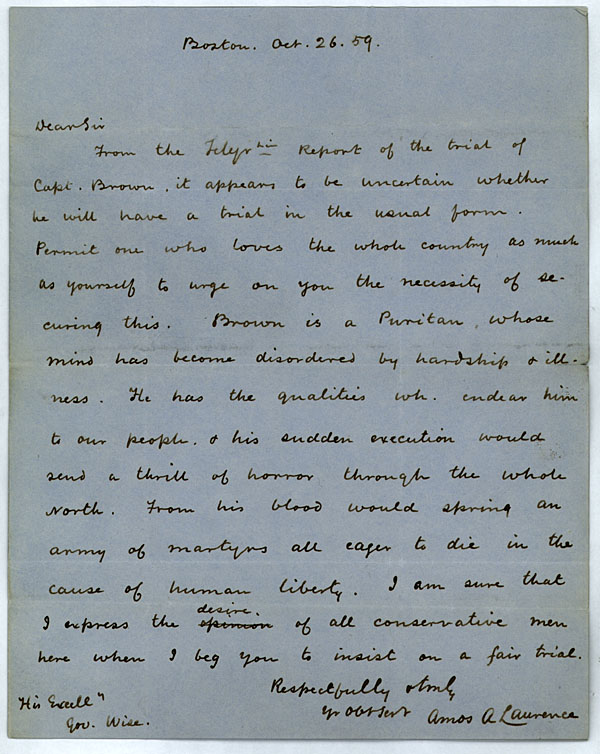 Boston. Oct. 26. 59.
Dear Sir
From the Telegrhic Report of the trial of
Capt. Brown, it appears to be uncertain whether
he will have a trial in the usual form.
Permit one who loves the whole country as much
as yourself to urge on you the necessity of se-
curing this. Brown is a Puritan, whose
mind has become disordered by hardship & ill-
ness. He has the qualities wh. endear him
to our people, & his sudden execution would
send a thrill of horror through the whole
North. From his blood would spring an
army of martyrs all eager to die in the
cause of human liberty. I am sure that
desire
I express the opinion of all conservative men
here when I beg you to insist on a fair trial.
Respectfully & truly
Yr Obt Sert
Amos A Lawrence
His Excelly
Gov. Wise.